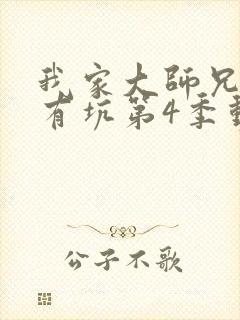 我家大師兄
有坑第4季動
公子不歌